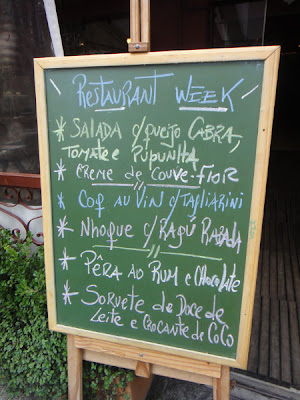 RESTAURANT WEEK
* SALADA c/queijo CABRA,
TOMATE e PUPUNHA
* CREME DE COUVE-FLOR
* COQ AU VIN c/TAGLIARINI
* NHOQUE c/RAGÚ RABADA
* PÊRA AO RUM e CHOCOLATE
* SORVETE de DOCE de
LEITE e CROCANTE de COCO